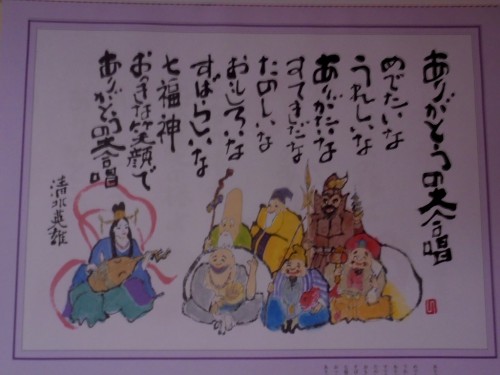 ありがとうの大合唱
めでたいな
うれしいな
ありがたいな
すてきだな
たのしいな
おもしろいな
すばらしいな
七福神
おっきな笑顔で
ありがとうの大合唱
清水英雄